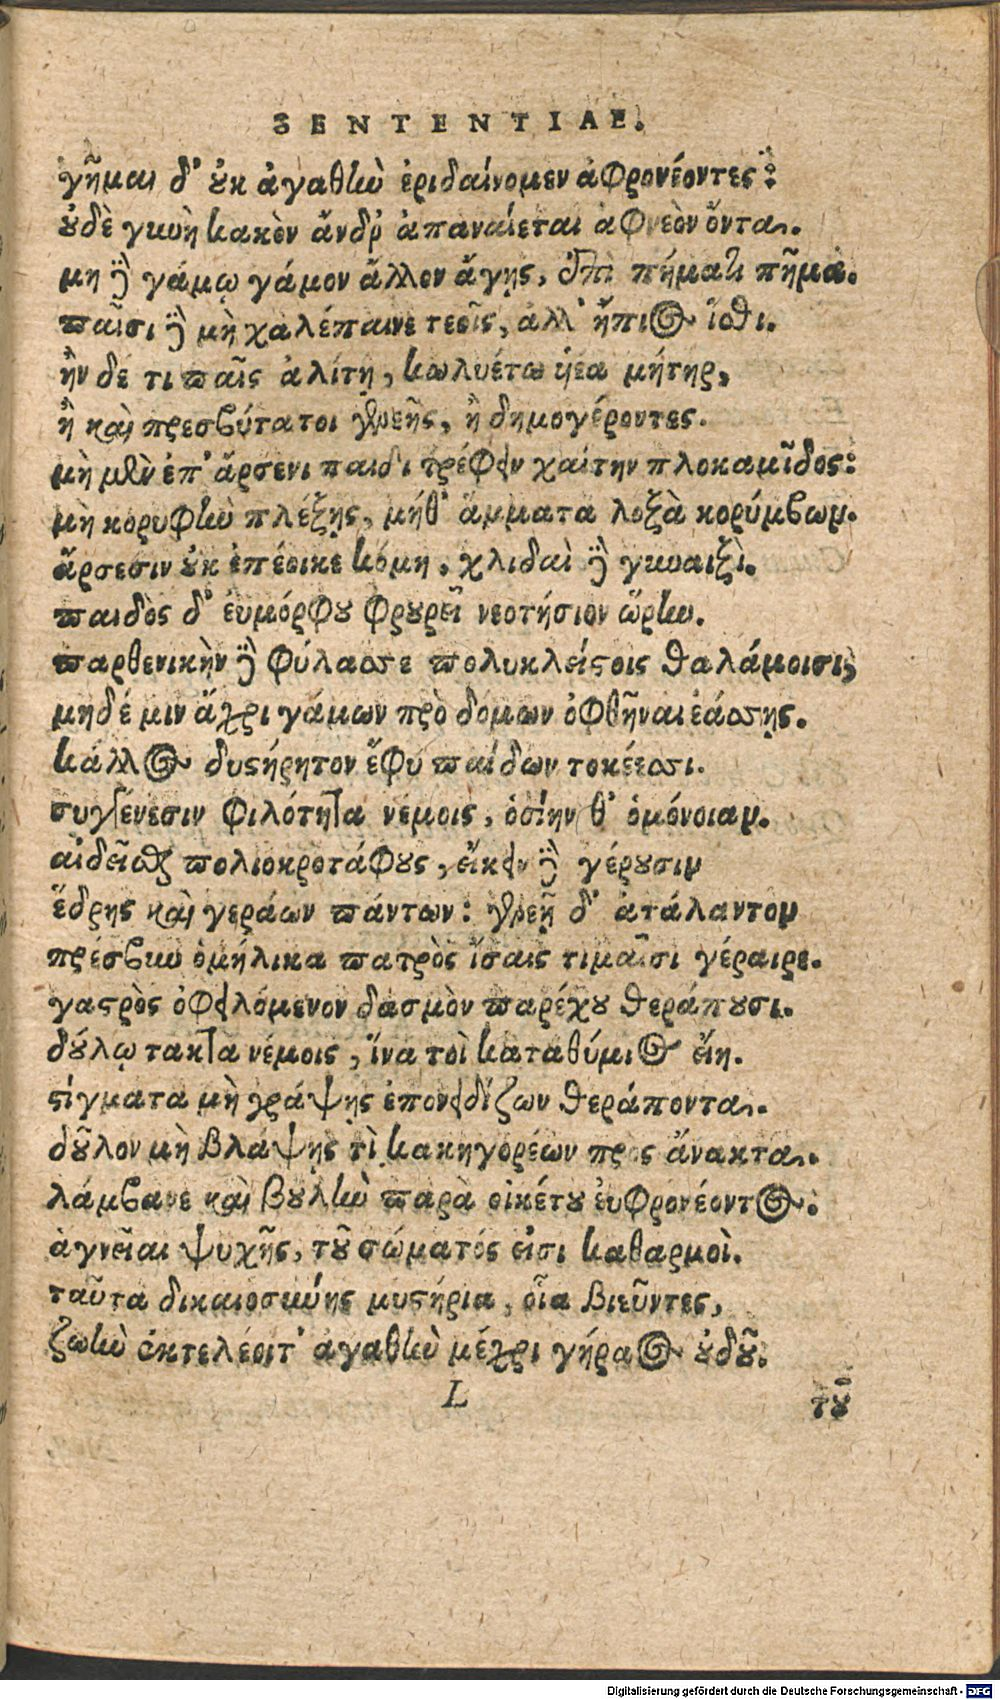 SENTENTIAE.
γῆμαι δ' οὐκ ἀγαθὴν ἐριδαίνομεν ἀφρονέοντες:
οὐδὲ γυνὴ κακὸν ἄνδρ' ἀπαναίεται ἀφνεὸν ὄντα.
μηδὲ γάμῳ γάμον ἄλλον ἄγῃς, ἐπὶ πήματι πῆμα.
παισὶ δὲ μὴ χαλέπαινε τεοῖς, ἀλλ' ἤπιος ἴσθι.
ἢν δέ τι παῖς ἀλίτῃ, κωλυέτω υἱέα μήτηρ,
ἢ καὶ πρεσβύτατοι γενεῆς, ἢ δημογέροντες.
μὴ μὲν ἐπ' ἄρσενι παιδὶ τρέφειν χαίτην πλοκαμῖδος:
μὴ κορυφὴν πλέξῃς, μήθ' ἅμματα λοξὰ κορύμβων.
ἄρσεσιν οὐκ ἐπέοικε κόμη, χλιδαὶ δὲ γυναιξί.
παιδὸς δ' εὐμόρφου φρουρεῖ νεοτήσιον ὥρην.
παρθενικὴν δὲ φύλασσε πολυκλείστοις θαλάμοισι,
μηδέ μιν ἄχρι γάμων πρὸ δόμων ὀφθῆναι ἐάσσῃς.
κάλλος δυστήρητον ἔφυ παίδων τοκέεσσι.
συγγένεσιν φιλότητα νέμοις, ὁσίην θ' ὁμόνοιαν.
αἰδεῖσθαι πολιοκροτάφους, εἴκειν δὲ γέρουσιν
ἕδρης καὶ γεράων πάντων: γενεῇ δ' ἀτάλαντον
πρέσβυν ὁμήλικα πατρὸς ἴσαις τιμαῖσι γέραιρε.
γαστρὸς ὀφειλόμενον δασμὸν παρέχου θεράπουσι.
δούλῳ τακτὰ νέμοις, ἵνα τοὶ καταθύμιος εἴη.
στίγματα μὴ γράψῃς ἐπονειδίζων θεράποντα.
δοῦλον μὴ βλάψῃς τὶ κακηγορέων πρὸς ἄνακτα.
λάμβανε καὶ βουλὴν παρὰ οἰκέτου εὐφρονέοντος:
ἁγνεῖαι ψυχῆς, τοῦ σώματός εἰσι καθαρμοὶ.
ταῦτα δικαιοσύνης μυστήρια, οἷα βιεῦντες,
ζωὴν ἐκτελέοιτ' ἀγαθὴν μέχρι γήραος οὐδοῦ.
L
τοῦ
Digitalisierung gefördert durch die Deutsche Forschungsgemeinschaft - DFG